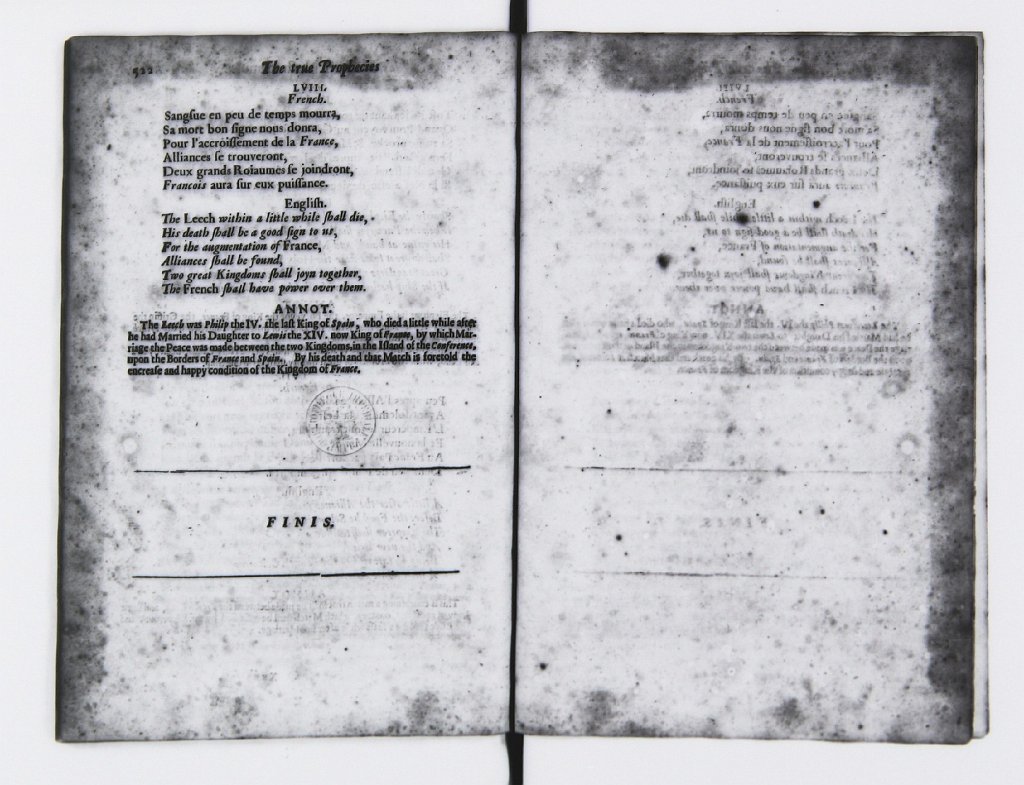 522 The true Prophecies
LVIII.
French.
Sangſue en peu de temps mourra,
Sa mort bon ſigne nous donra,
Pour l'accroiſſement de la France,
Alliances ſe trouveront,
Deux grands Roiaumes ſe joindront,
Francois aura ſur eux puiſſance.
Engliſh.
The Leech within a little while ſhall die,
His death ſhall be a good ſign to us,
For the augmentation of France,
Alliances ſhall be found,
Two great Kingdoms ſhall joyn together,
The French ſhall have power over them.
ANNOT.
The Leech was Philip the IV. the laſt King of Spain, who died a little while after
he had Married his Daughter to Lewis the XIV. now King of France, by which Mar-
riage the Peace was made between the two Kingdoms, in the Iſland of the Conference,
upon the Borders of France and Spain. By his death and that Match is foretold the
encreaſe and happy condition of the Kingdom of France.
FINIS.